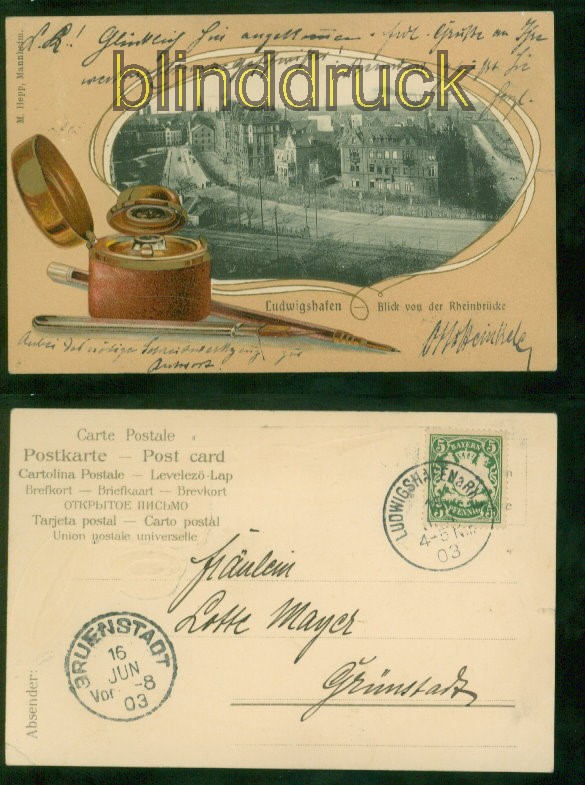 M. Hepp, Mannheim.
L. L! Glücklich hier angekommen. Frdl. Grüße an Ihre
werten
blinddruck
Ludwigshafen — Blick von der Rheinbrücke
Anbei das nötige Schreibwerkzeug zur
Antwort.
Carte Postale
Postkarte — Post card
Cartolina Postale — Levelezö-Lap
Brefkort — Briefkaart — Brevkort
ОТКРЫТОЕ ПИСЬМО
Tarjeta postal — Carto postâl
Union postale universelle
5 BAYERN 5
PFENNIG
LUDWIGSHAFEN a/RH
4-5 Nm.
03
Fräulein
Lotte Mayer
Grünstadt
GRUENSTADT
16
JUN
Vor. -8
03
Absender: